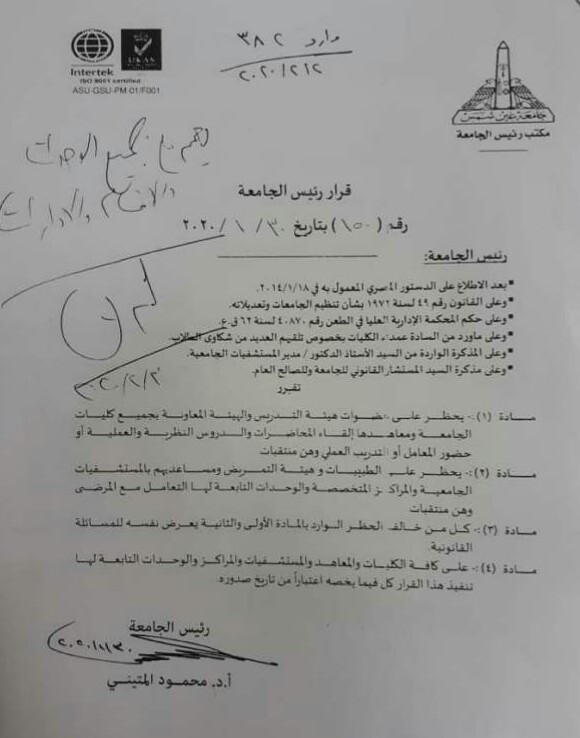 Intertek
ISO 9001 certified
ASU-GSU-PM 01/F001
UKAS
وارد ٣٨٢
٢٠٢٠/٢/٢
جامعة عين شمس
مكتب رئيس الجامعة
يعمم على جميع الوحدات
والأقسام والإدارات
٢٠٢٠/٢/٢
قرار رئيس الجامعة
رقم (١٥٠) بتاريخ ٣٠ / ١ / ٢٠٢٠
رئيس الجامعة:
- بعد الاطلاع على الدستور المصري المعمول به في ٢٠١٤/١/١٨.
- وعلى القانون رقم ٤٩ لسنة ١٩٧٢ بشأن تنظيم الجامعات وتعديلاته.
- وعلى حكم المحكمة الإدارية العليا في الطعن رقم ٤٠٨٧٠ لسنة ٦٢ ق.ع.
- وعلى ماورد من السادة عمداء الكليات بخصوص تلقيهم العديد من شكاوى الطلاب.
- وعلى المذكرة الواردة من السيد الأستاذ الدكتور / مدير المستشفيات الجامعية.
- وعلى مذكرة السيد المستشار القانوني للجامعة وللصالح العام.
تقرر
مادة (١):- يحظر على عضوات هيئة التدريس والهيئة المعاونة بجميع كليات
الجامعة ومعاهدها إلقاء المحاضرات والدروس النظرية والعملية أو
حضور المعامل أو التدريب العملي وهن منتقبات
مادة (٢):- يحظر على الطبيبات وهيئة التمريض ومساعديهم بالمستشفيات
الجامعية والمراكز المتخصصة والوحدات التابعة لها التعامل مع المرضى
وهن منتقبات
مادة (٣):- كل من خالف الحظر الوارد بالمادة الأولى والثانية يعرض نفسه للمسائلة
القانونية.
مادة (٤):- على كافة الكليات والمعاهد والمستشفيات والمراكز والوحدات التابعة لها
تنفيذ هذا القرار كل فيما يخصه اعتباراً من تاريخ صدوره.
رئيس الجامعة
٢٠٢٠/١/٣٠
أ.د. محمود المتيني